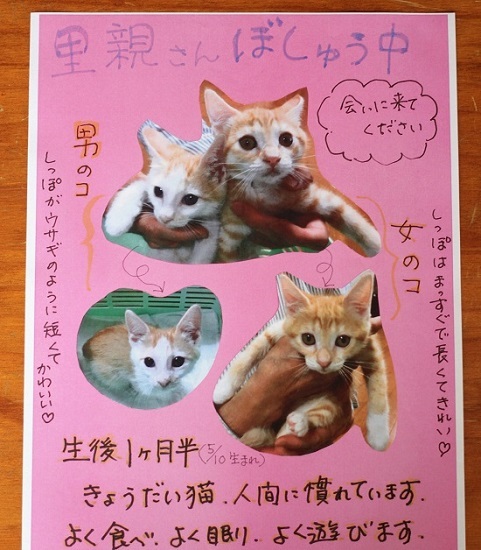 里親さんぼしゅう中
会いに来て
ください
男のコ
しっぽがウサギのように短くて
かわいい♡
女のコ
しっぽはまっすぐで長くてきれい♡
生後1ヶ月半(5/10生まれ)
きょうだい猫.人間に慣れています.
よく食べ.よく眠り.よく遊びます.